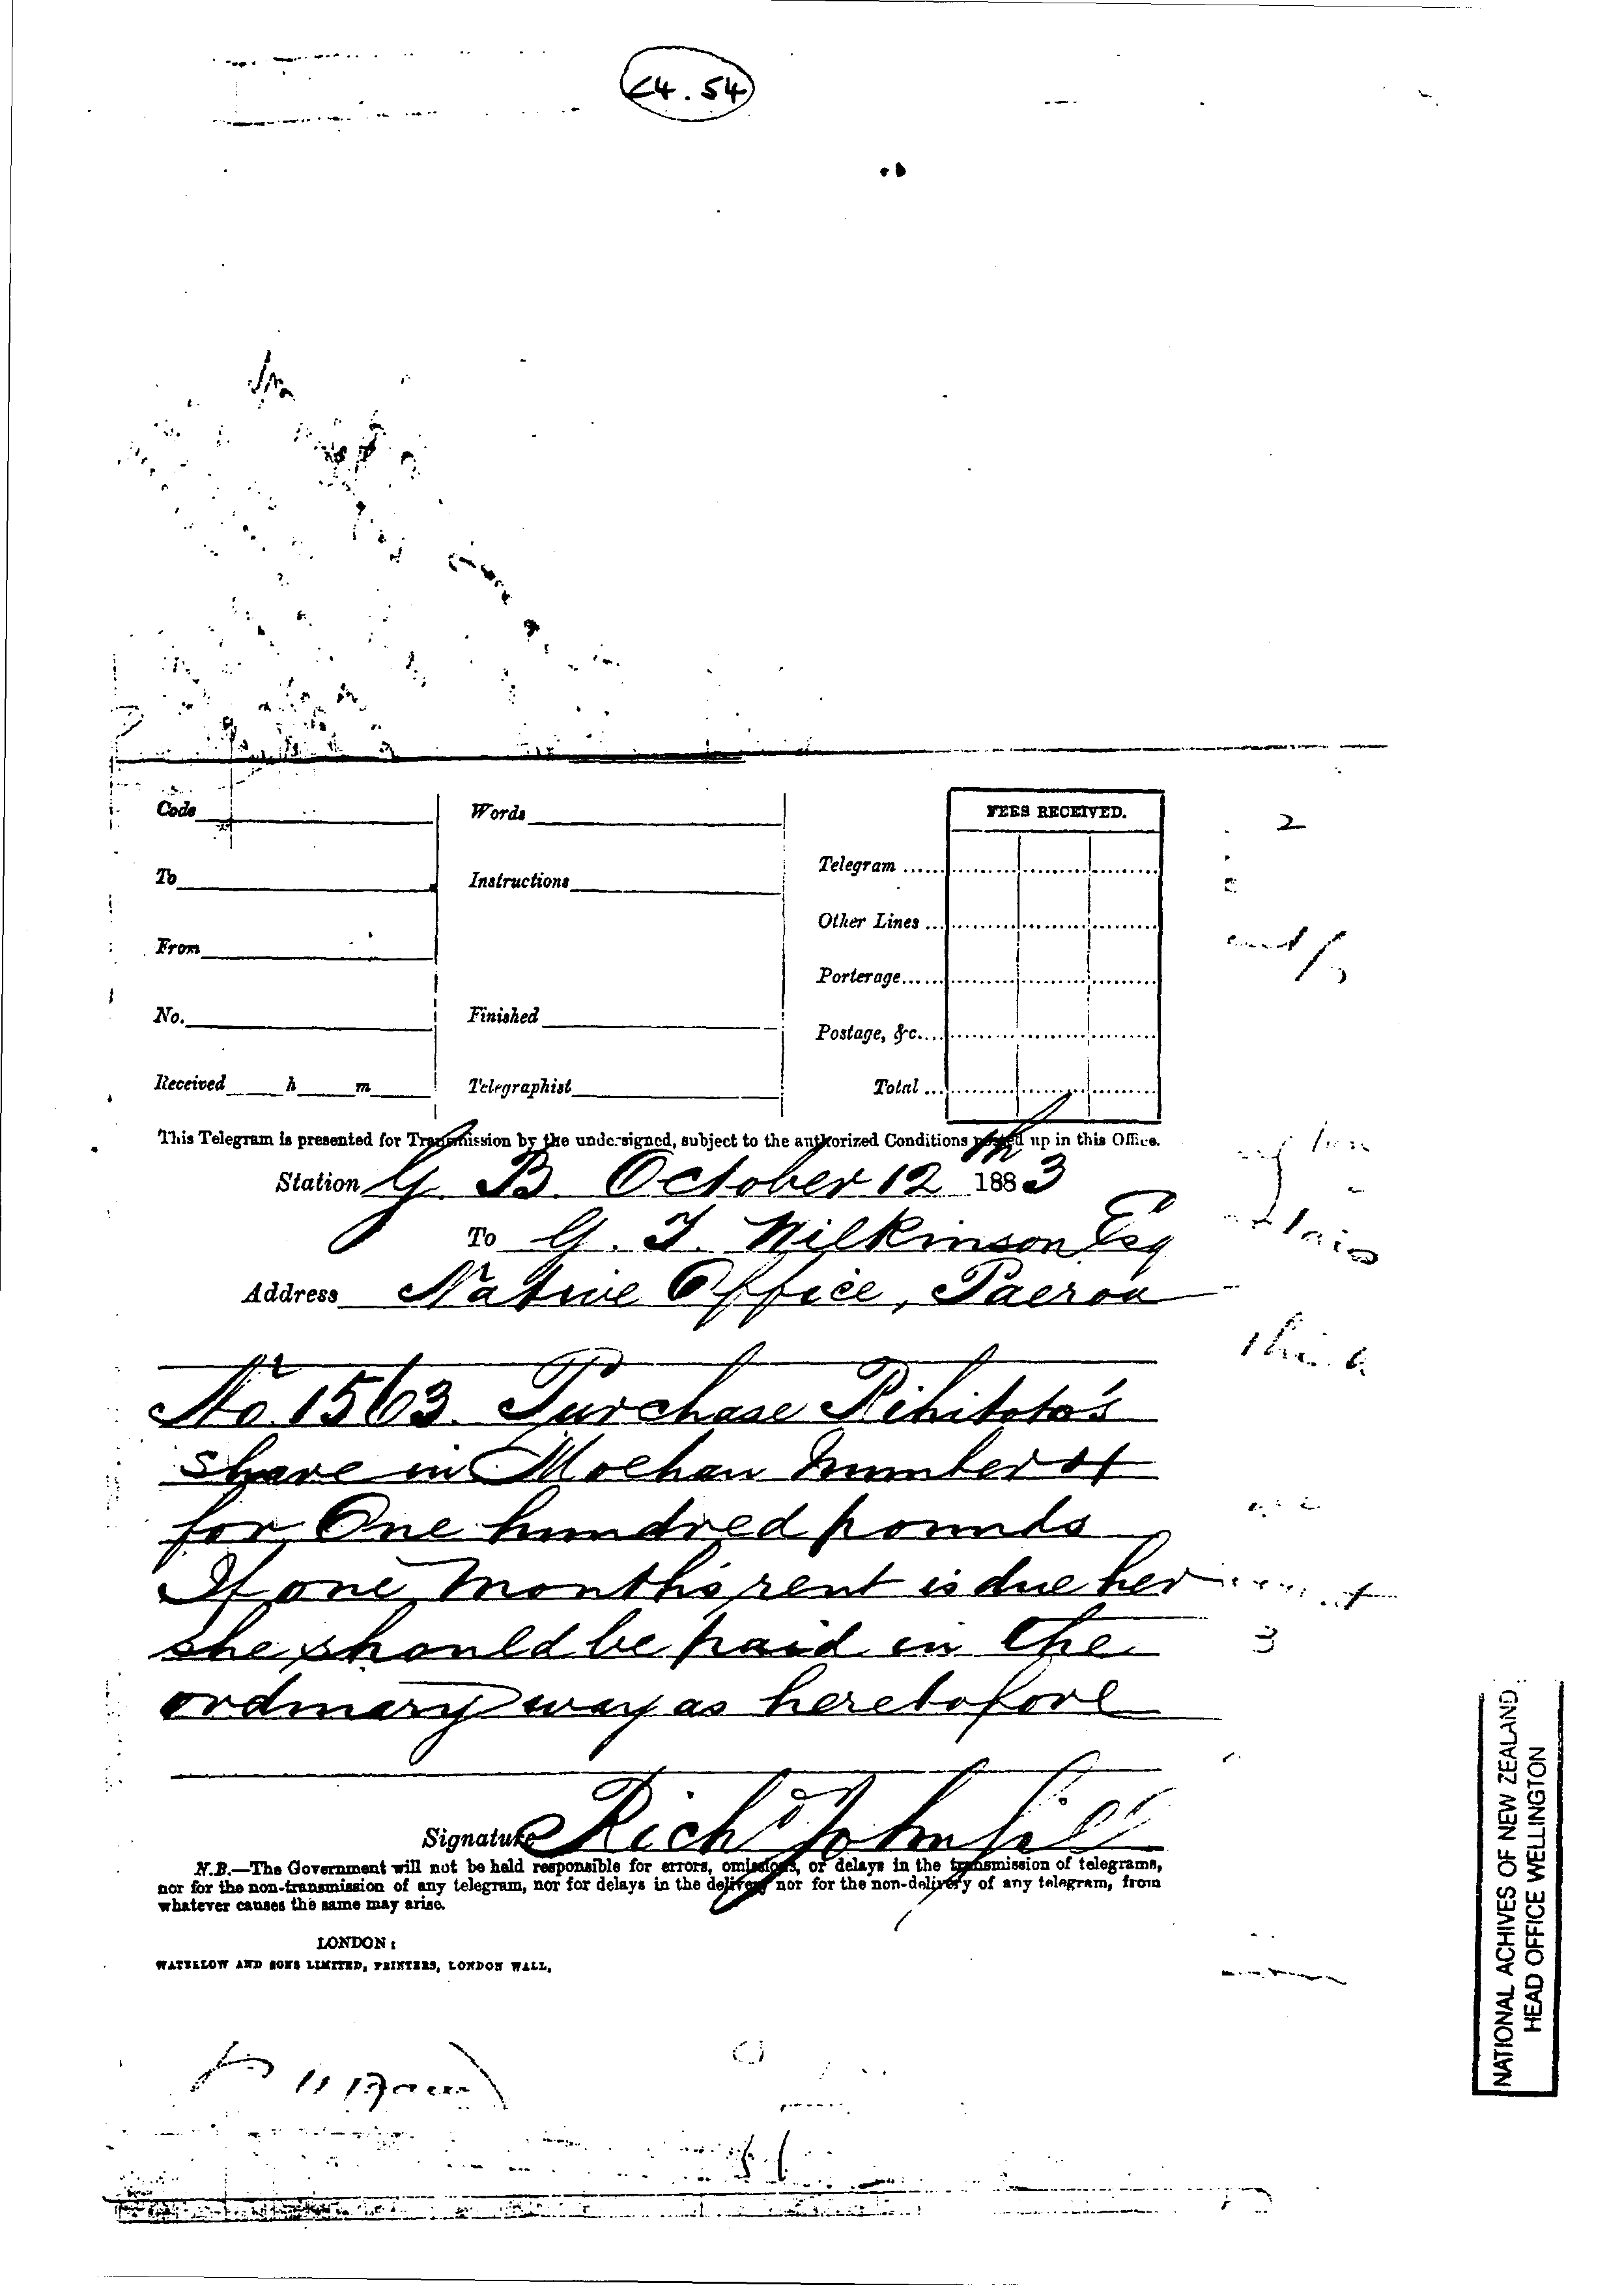 Code
Words
FEES RECEIVED.
To
Instructions
Telegram ......
Other Lines ...
From
Porterage......
No.
Finished
Postage, &c....
Received h m
Telegraphist
Total ...
This Telegram is presented for Transmission by the undersigned, subject to the authorized Conditions posted up in this Office.
Station G. B. October 12th 1883
To G. T. Wilkinson Esq
Address Native Office, Paeroa
No 1563. Purchase Rihitoto's
share in Moehau Number
for One hundred pounds
If one month's rent is due her
she should be paid in the
ordinary way as heretofore
Signature Richd John Gill
N.B.—The Government will not be held responsible for errors, omissions, or delays in the transmission of telegrams,
nor for the non-transmission of any telegram, nor for delays in the delivery nor for the non-delivery of any telegram, from
whatever causes the same may arise.
LONDON:
WATERLOW AND SONS LIMITED, PRINTERS, LONDON WALL.
NATIONAL ACHIVES OF NEW ZEALAND
HEAD OFFICE WELLINGTON